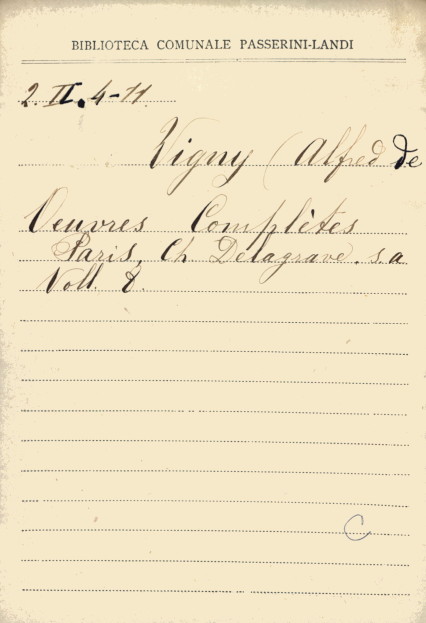 BIBLIOTECA COMUNALE PASSERINI-LANDI
2. II. 4-11.
Vigny (Alfred de
Oeuvres Complètes
Paris, Ch Delagrave. s. a
Voll. 8.
C